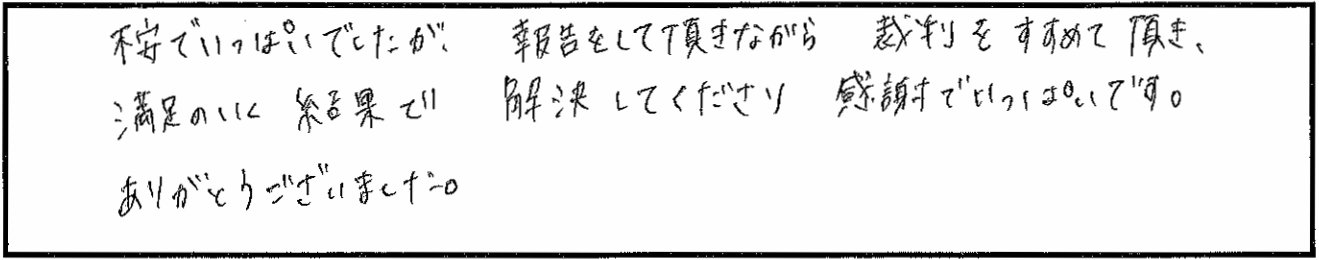 不安でいっぱいでしたが、 報告をして頂きながら 裁判をすすめて頂き、
満足のいく 結果で 解決してくださり 感謝でいっぱいです。
ありがとうございました。